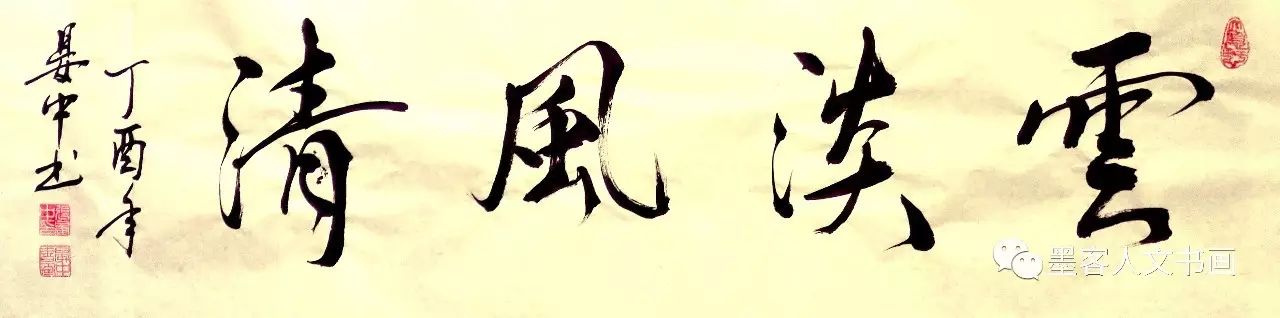 雲淡風清
丁酉年
晏中书
墨客人文书画